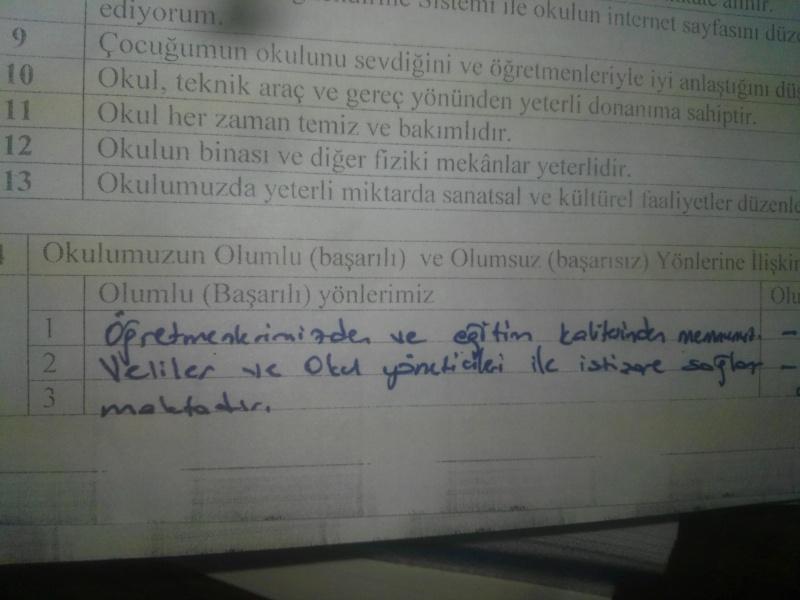 Sistemi ile okulun internet sayfasını
ediyorum.
9 Çocuğumun okulunu sevdiğini ve öğretmenleriyle iyi anlaştığını
10 Okul, teknik araç ve gereç yönünden yeterli donanıma sahiptir.
11 Okul her zaman temiz ve bakımlıdır.
12 Okulun binası ve diğer fiziki mekânlar yeterlidir.
13 Okulumuzda yeterli miktarda sanatsal ve kültürel faaliyetler
Okulumuzun Olumlu (başarılı) ve Olumsuz (başarısız) Yönlerine
Olumlu (Başarılı) yönlerimiz
1 Öğretmenlerimizden ve eğitim kalitesinden memnunuz. -
2 Veliler ve Okul yöneticileri ile istişare sağlan -
3 maktadır.